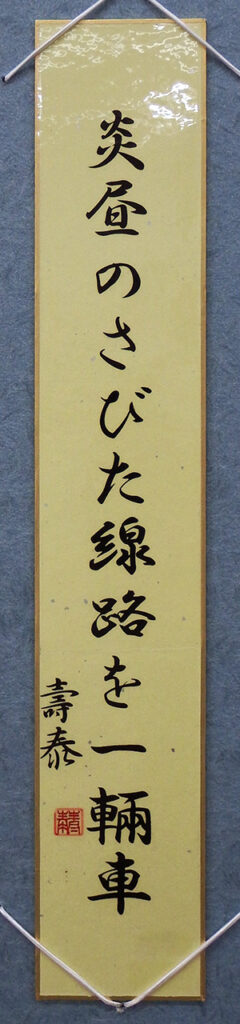 炎昼のさびた線路を一輛車
壽泰